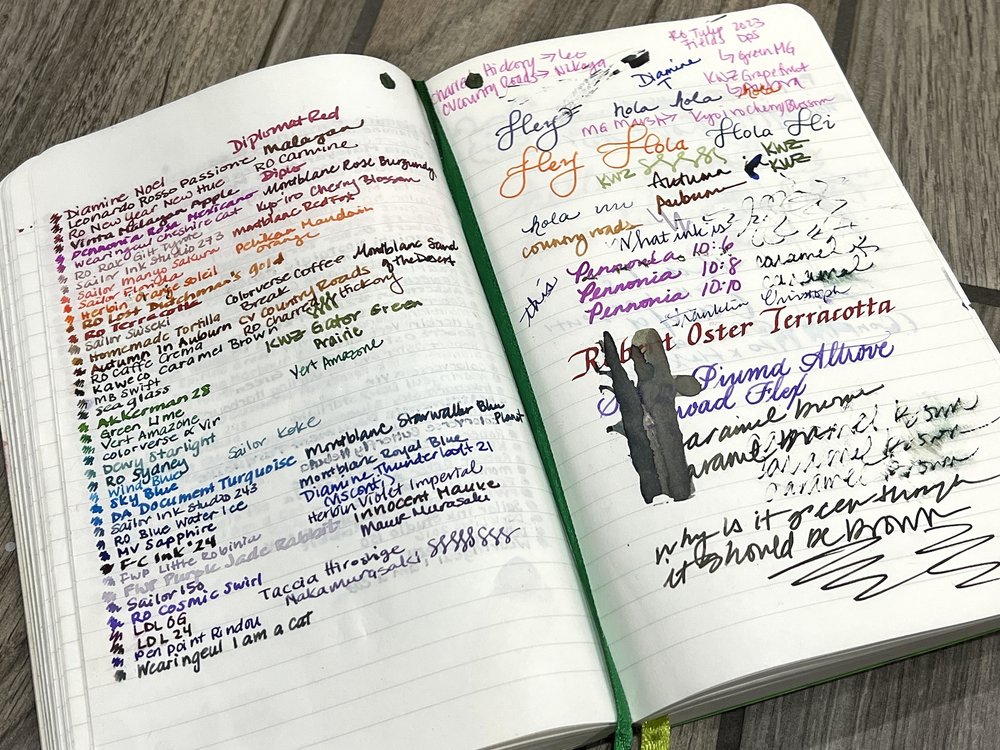 Diplomat Red
Diamine Noel Malayan
Leonardo Rosso Passione
RO New Year New Hue RO Carmine
Vinta Malayan Apple Diplo
Pennonia Rosa Mexicano Montblanc Rose Burgundy
Wearingeul Cheshire Cat Kyo iro Cherry Blossom
RO Rak Gilt Tynt Montblanc Red Fox
Sailor Ink Studio 273
Sailor Manyo Sakura Pelikan Mandarin
Sailor Florida Orange
Herbin Orange Soleil
RO Lost Dutchman's gold
RO Terracotta Colorverse Coffee Break Montblanc Sand of the Desert
Sailor Suiseki
Homemade Tortilla CV Country Roads
Autumn in Auburn RO Charred Hickory
RO Caffe Crema
Kaweco Caramel Brown KWZ Gator Green
MB Swift Prairie
Sea glass
Akkerman 28 Vert Amazone
Green Lime
Vert Amazone
Colorverse α Vir
Dewy Starlight Sailor Koke
RO Sydney Montblanc Starwalker Blue Planet
Wind Blue
Sky Blue Montblanc Royal Blue
DA Document Turquoise Diamine Thunderbolt 21
Sailor Ink Studio 243 Visconti
RO Blue Water Ice Herbin Violet Imperial
MV Sapphire Innocent Mauke
F-C Ink '24 Mauk Murasaki
FWP Little Robinia
FWP Purple Jade Rabbit
Sailor 150 Taccia Hiroshige
RO Cosmic Swirl Nakamurasaki
LDL OG
LDL 24
Pen Point Rindou
Wearingeul I am a cat
Charred Hickory → Leo
CV Country Roads → Nakaya
RO Tulip 2023
Fields DPS
↳ green MG
KWZ Grapefruit
Diamine
Hey hola hola
MG Marsh → Kyo Iro Cherry Blossom
Hola Hi
Hey Hola
KWZ KWZ
KWZ
Autumn
Auburn
hola
country roads What ink is
this Pennonia 10:6
Pennonia 10:8 caramel
Pennonia 10:10 caramel
Franklin Christoph
Robert Oster Terracotta
Piuma Altrove
Broad Flex
caramel brown
caramel brown
caramel brown
caramel brown
Why is it green though
it should be brown